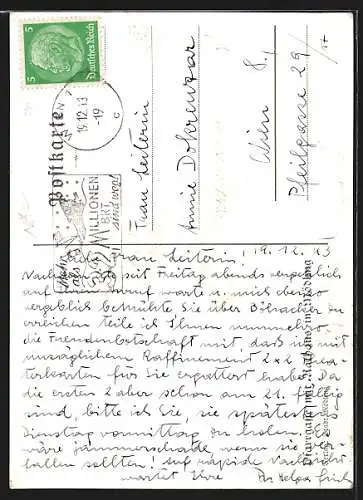 5 Deutsches Reich 5
WIEN
19.12.43
-19
c
Postkarte
MILLIONEN
BRT
versenkt
Frau Leiterin
Annie Dokrenzar
Wien 8.,
Pfeilgasse 29/
17
Liebe Frau Leiterin! 19.12.43
Nachdem ich seit Freitag abends vergeblich
auf Ihren Anruf warte u. mich ebenso
vergeblich bemühte Sie über Bölsacher zu
erreichen teile ich Ihnen nunmehr
die Freudenbotschaft mit, dass ich mit
unsäglichem Raffinement 2x2
karten für Sie ergattert habe. Da
die ersten 2 aber schon am 21. fällig
sind, bitte ich Sie, sie spätestens
Dienstag vormittag zu holen. Es
wäre jammerschade, wenn sie ver-
fallen sollten! Auf rapide Nachricht
wartet Ihre
Pfarrgasse mit Rathaus in Mödling